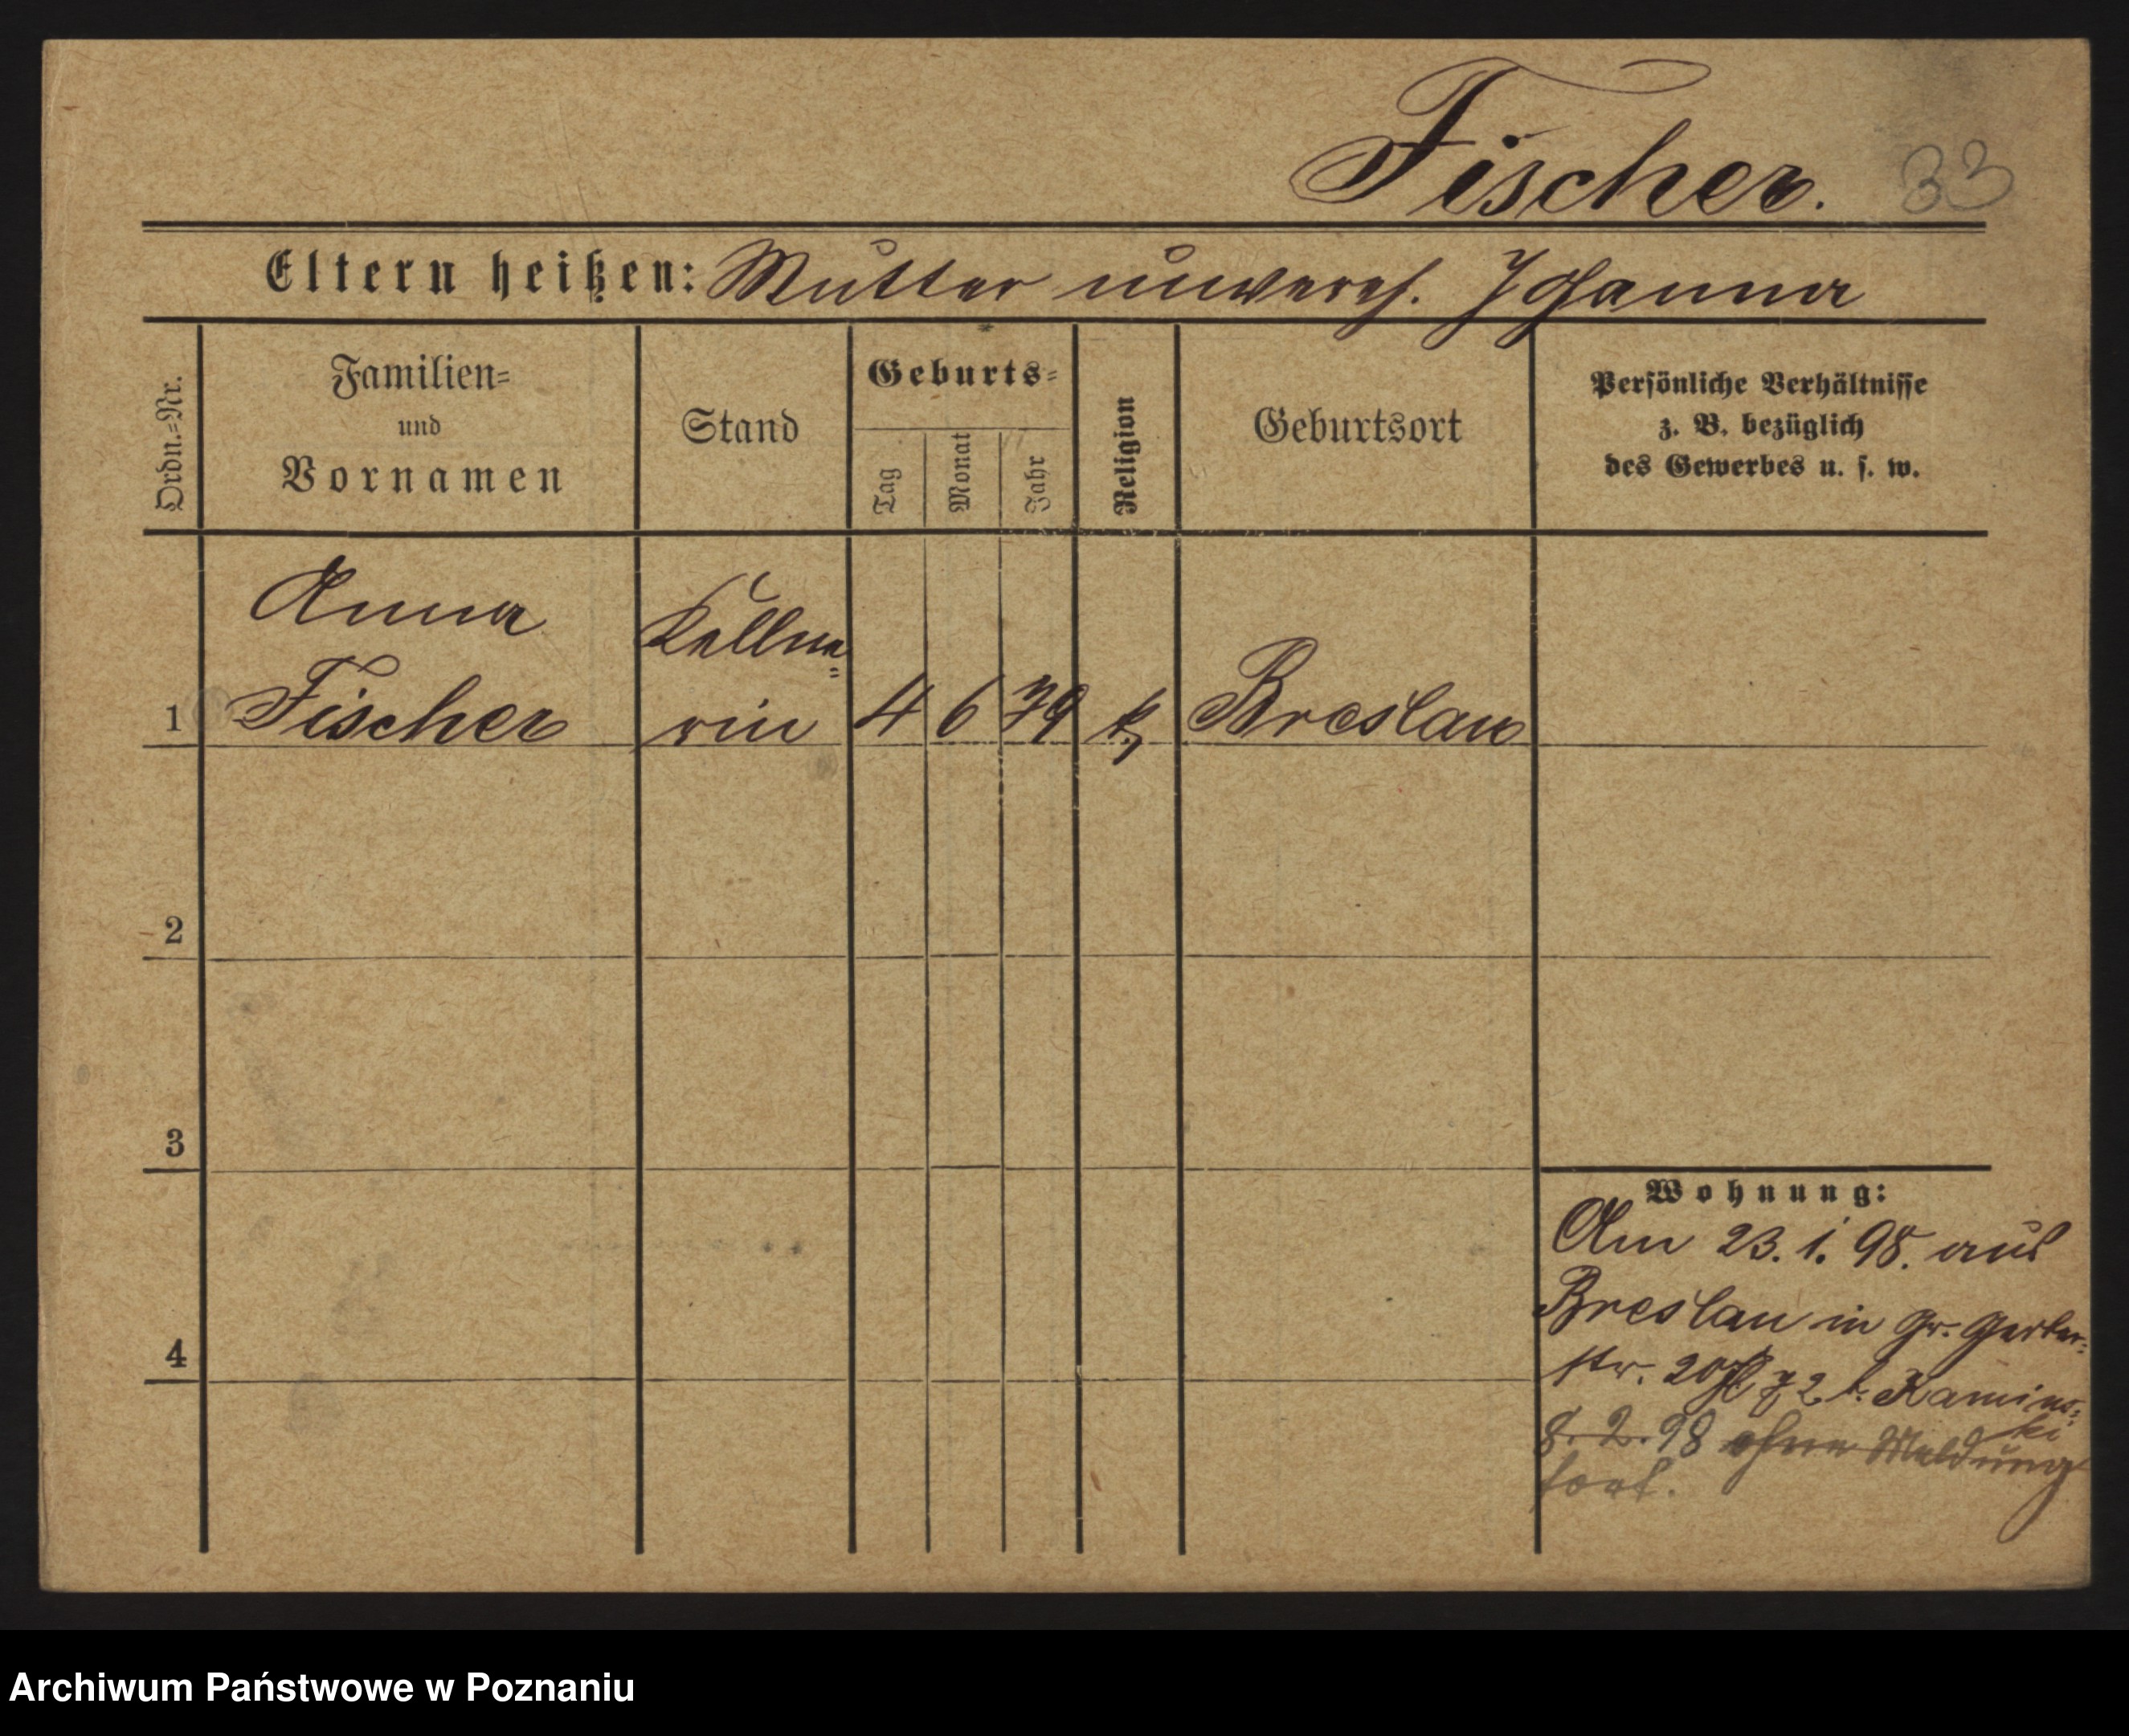 Fischer. 33
Eltern heißen: Mutter unvereh. Johanna
Ordn.=Nr.
Familien=
und
Vornamen
Stand
Geburts=
Tag
Monat
Jahr
Religion
Geburtsort
Persönliche Verhältnisse
z. B. bezüglich
des Gewerbes u. s. w.
Anna
Kellne=
1 Fischer rin 4 6 79 k. Breslau
2
3
4
Wohnung:
Am 23. 1. 98. aus
Breslau in Gr. Gerber=
str. 20 b. Kamins=
ki
8. 2. 98 ohne Meldung
fort.
Archiwum Państwowe w Poznaniu